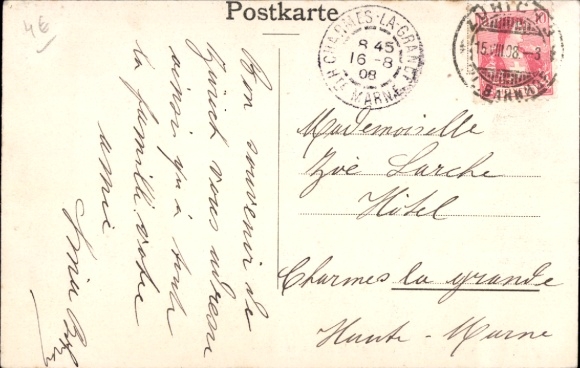 4€
Postkarte
CHARMES-LA-GRANDE
8 45
16 -8
08
HTE MARNE
ZÜRICH
15.VIII.08.-3
BAHNH.
10
Bon souvenir de
Zürich vous adresse
ainsi qu'à toute
la famille votre
amie
Mademoiselle
Zoé Larche
Hôtel
Charmes la grande
Haute-Marne